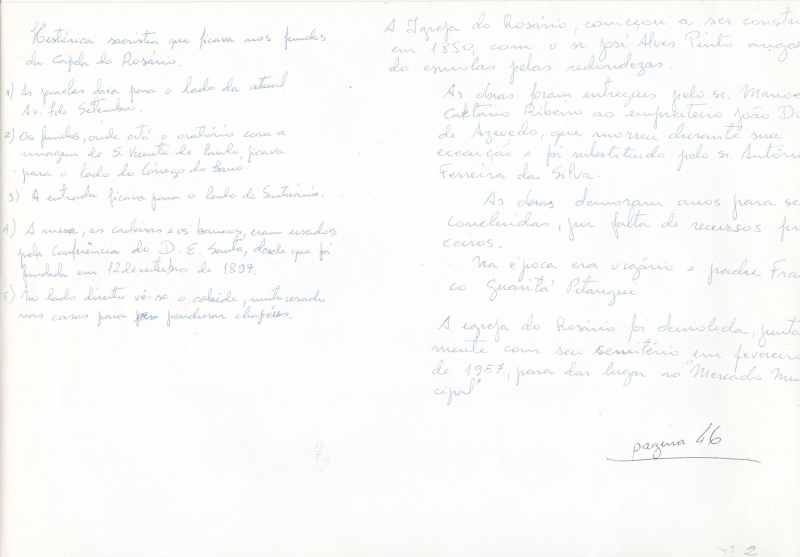 Histórica sacristia que ficava nos fundos
da Capela do Rosário.
1) As janelas dava para o lado da atual
Av. 7 de Setembro.
2) Os fundos, onde está o oratório com a
imagem de S. Vicente de Paulo, ficava
para o lado do Corrego do
3) A entrada ficava para o lado do Santuário.
4) A mesa, as cadeiras e os bancos, eram usados
pela Conferência do D. E. Santo, desde que foi
fundada em 12 de outubro de 1897.
5) No lado direito vê-se o cabide, muito usado
nas casas para pendurar chapéus.
A Igreja do Rosário, começou a ser constru
em 1850, com o sr. José Alves Pinto anga
do esmolas pelas redondezas.
As obras foram entregues pelo sr. Manoe
Caetano Ribeiro ao empreiteiro João Du
de Azevedo, que morreu durante sua
execução e foi substituido pelo sr. Antôni
Ferreira da Silva.
As obras demoram anos para se
concluidas, por falta de recursos fin
ceiros.
Na época era vigário e padre Fran
co Guaritá Pitangui.
A egreja do Rosário foi demolida, junta
mente com seu semitério em fevereiro
de 1957, para dar lugar ao "Mercado Mu
cipal"
pagina 46
nº 2